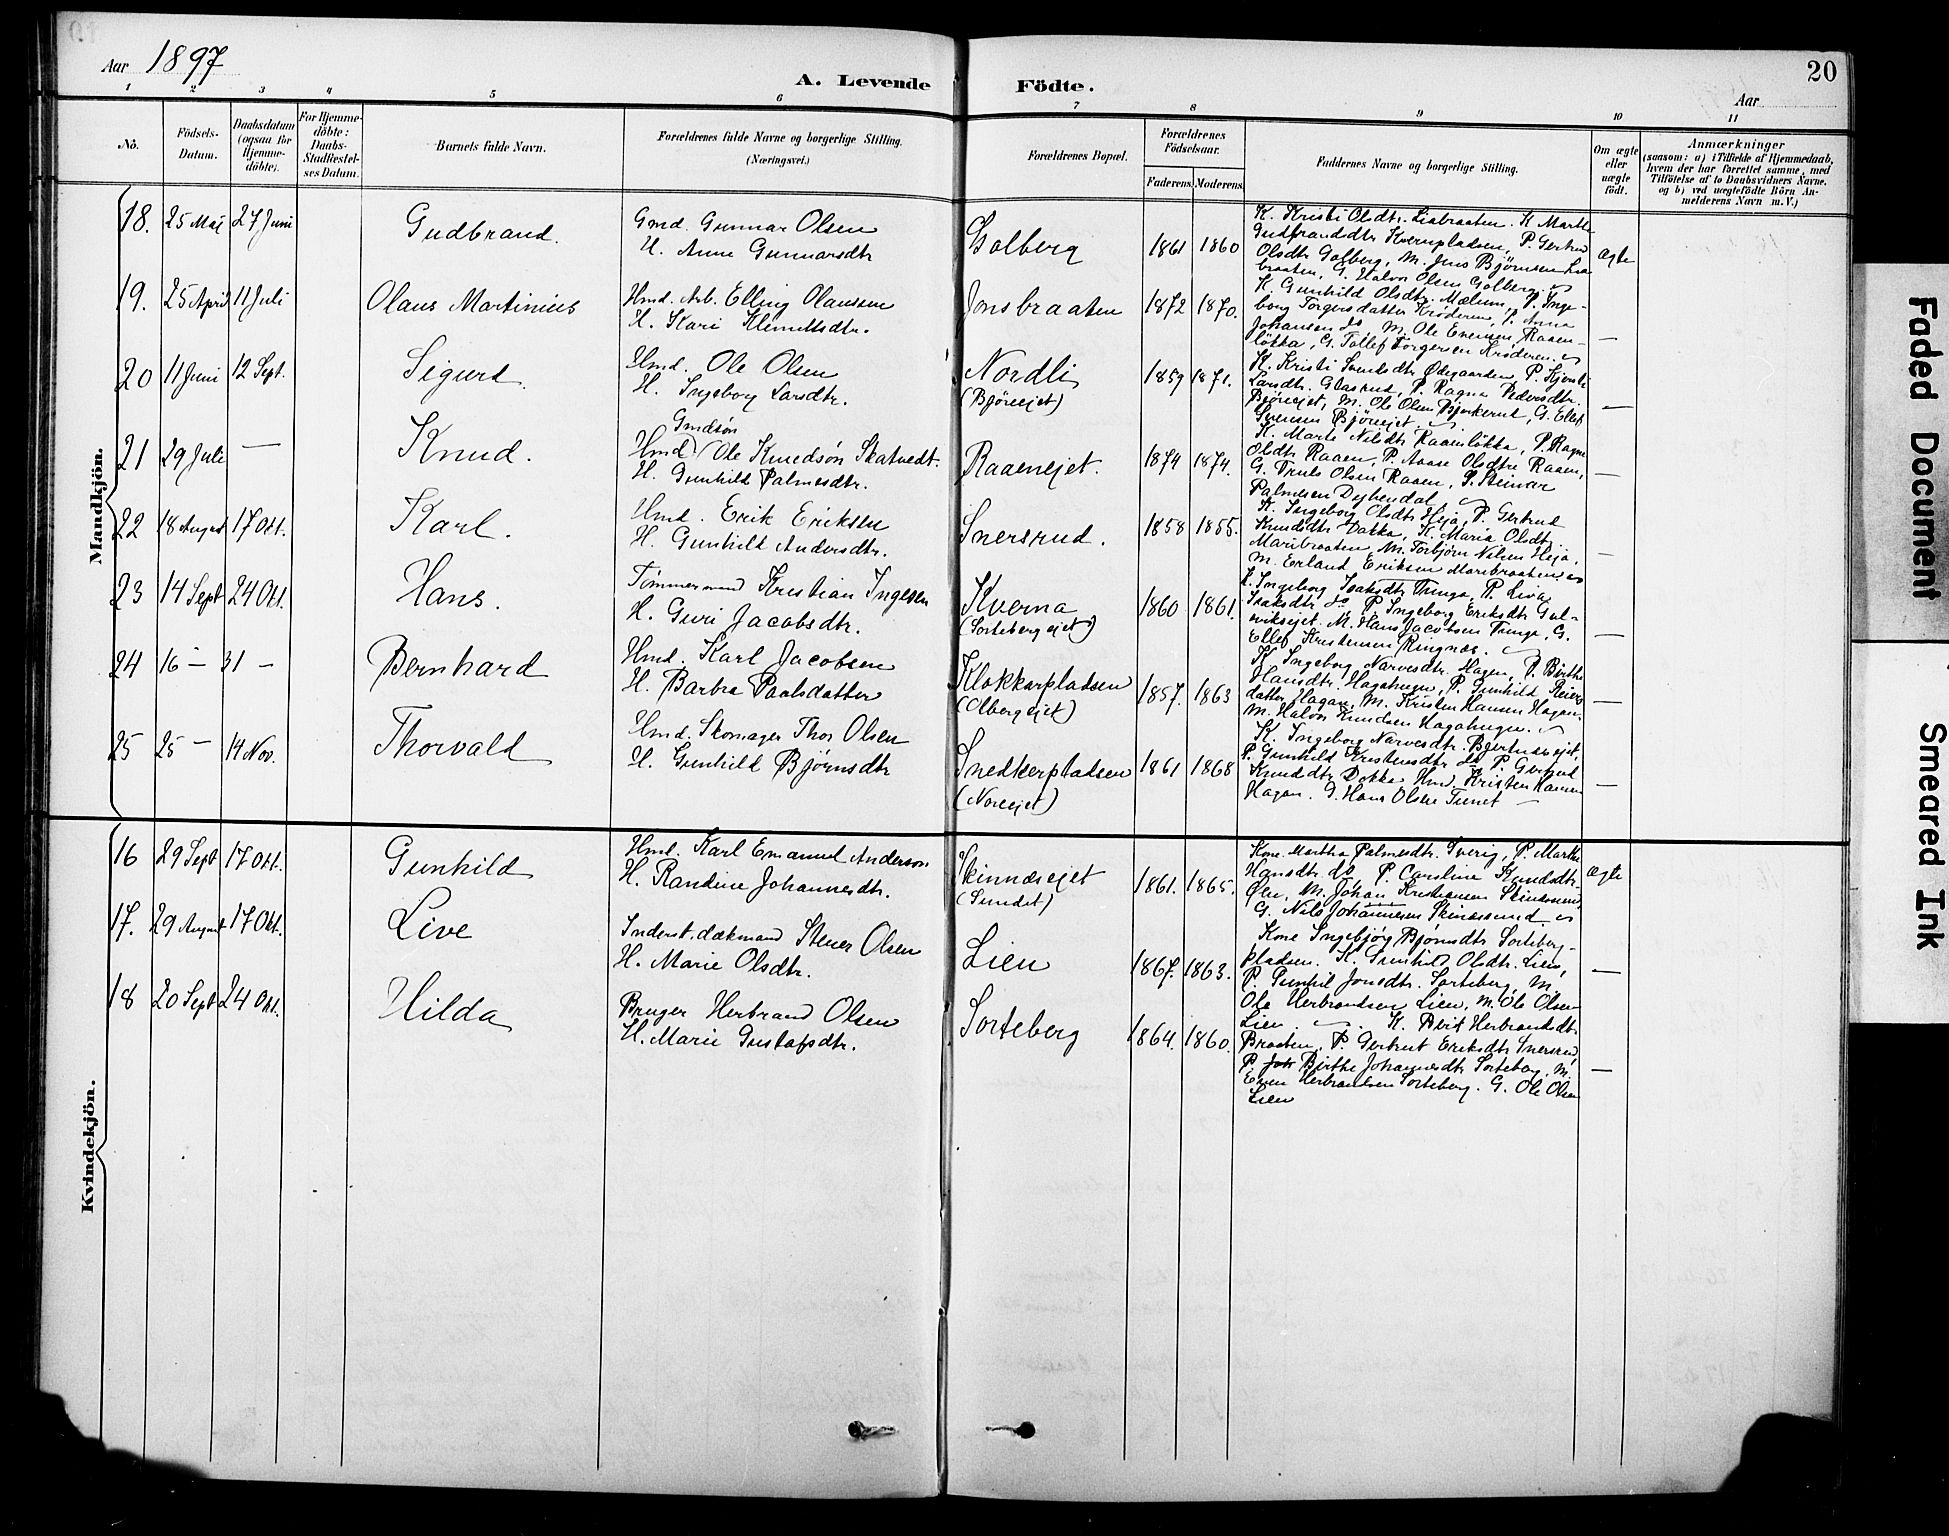 Aar 1897
A. Levende Födte.
20
Aar
1 2 3 4 5 6 7 8 9 10 11
No.
Födsels-Datum.
Daabsdatum (ogsaa for Hjemme-döbte).
For Hjemme-döbte: Daabs-Stadfæstel-ses Datum.
Barnets fulde Navn.
Forældrenes fulde Navne og borgerlige Stilling.
(Næringsvei.)
Forældrenes Bopæl.
Forældrenes Födselsaar.
Faderens. Moderens.
Faddernes Navne og borgerlige Stilling.
Om ægte eller uægte födt.
Anmærkninger
(saasom: a) i Tilfælde af Hjemmedaab, hvem der har forrettet samme, med Tilföielse af to Daabsvidners Navne, og b) ved uægtefödte Börn Anmelderens Navn m. V.)
Mandkjön.
18. 25 Mai 27 Juni Gudbrand. Gmd. Gunnar Olsen
H. Anne Gunnarsdtr
Golberg 1861 1860
K. Kristi Olsdtr. Liabraaten. K. Marthe
Gudbrandsdtr Kvernpladsen, P. Gertrud
Olsdtr Golberg, M. Jens Bjørnsen Lia
braaten, G. Halvor Olsen Golberg.
Ægte
19. 25 April 11 Juli Olaus Martinius Hmd. Arb. Elling Olaussen
H. Kari Klemetsdtr.
Jonsbraaten 1872 1870.
K. Gunhild Olsdtr. Mælum, P. Inge-
borg Torgersdatter Krøderen, P. Anna
Johansen do, M. Ole Evensen, Raaen-
løkka, G. Tollef Torgersen Krøderen.
—
20 11 Juni 12 Sept. Sigurd. Hmd. Ole Olsen
H. Ingeborg Larsdtr.
Nordli
(Björeejet)
1859 1871.
Ødegaarden, P. Kjersti
Larsdtr. Glasrud, P. Ragna Pedersdtr.
Björeejet, M. Ole Olsen Bjerkerud, G. Ellef
Svensen Björeejet.
—
21 29 Juli — Knud. Gmdsön
Hmd. Ole Knudsön Skatvedt.
H. Gunhild Palmesdtr.
Raaenejet. 1874 1874.
K. Marte Nilsdtr Raaenløkka, P. Ragne
Olsdtr Raaen, P. Aase Olsdtre Raaen,
G. Truls Olsen Raaen, G. Steinar
Palmesen
—
22 18 August 17 Okt. Karl. Hmd. Erik Eriksen
H. Gunhild Andersdtr.
Snersrud. 1858 1855.
K. Ingeborg Olsdtr Heja, P. Gertrud
Knudsdtr Dokka, K. Maria Olsdtr.
Maribraaten, M. Torbjørn Nilsen Heja,
M. Erland Eriksen Maribraaten
—
23 14 Sept 24 Okt. Hans. Tömmermand Kristian Ingesen
H. Guri Jacobsdtr.
Kverna
(Sortebergejet)
1860 1861.
K. Ingeborg Isaksdtr Thinge, P. Liva
Isaksdtr do P. Ingeborg Eriksdtr Gul-
sviksejet. M. Hans Jacobsen Tinge, G.
Ellef Kristensen Ringnæs.
—
24 16 — 31 — Bernhard Hmd. Karl Jacobsen
H. Barbra Paalsdatter
Klokkerpladsen
(Olbergejet)
1857. 1863
K. Ingeborg Narvesdtr. Hagen, P. Birthe
Hansdtr. Hagahugen, P. Gunhild Reiers
datter Hagan, M. Kristen Hansen Hagan.
M. Halvor Knudsen Hagahugen.
—
25 25 — 14 Nov. Thorvald Hmd. Skomager Thor Olsen
H. Gunhild Björnsdtr
Snedkerpladsen
(Noreejet)
1861 1868
K. Ingeborg Narvesdtr.
P. Gunhild Kristensdtr do P. Gertrud
Knudsdtr Dokka Hmd. Kristen Hansen
Hagan. G. Hans Olsen Tunet —
—
Kvindekjön.
16 29 Sept 17 Okt. Gunhild Hmd. Karl Emanuel Anderson
H. Randine Johannesdtr.
Skinnæsejet
(Sundet)
1861. 1865.
Kone Martha Palmesdtr. Sverig, P. Marthe
Hansdtr do, P. Caroline Knudsdtr.
Øen, M. Johan Kristiansen Skinæssund,
G. Nils Johannesen Skinæssund
Ægte
17. 29 August 17 Okt. Live Inderst. dækmand Stener Olsen
H. Marie Olsdtr.
Lien 1867. 1863.
Kone Ingebjörg Bjørnsdtr Sorteberg-
pladsen. K. Gunhild Olsdtr. Lien,
P. Gunhil Jonsdtr. Sorteberg, M.
Ole Herbrandsen Lien, M. Ole Olsen
Lien
—
18 20 Sept 24 Okt. Hilda Bruger Herbrand Olsen
H. Marie Gustafsdtr.
Sorteberg 1864. 1860.
K. Berit Herbrandsdtr.
Braaten, P. Gertrut Eriksdtr Snersrud,
P. Birthe Johannesdtr Sorteberg, M.
Even Herbrandsen Sorteberg. G. Ole Olsen
Lien
—
Faded Document
Smeared Ink